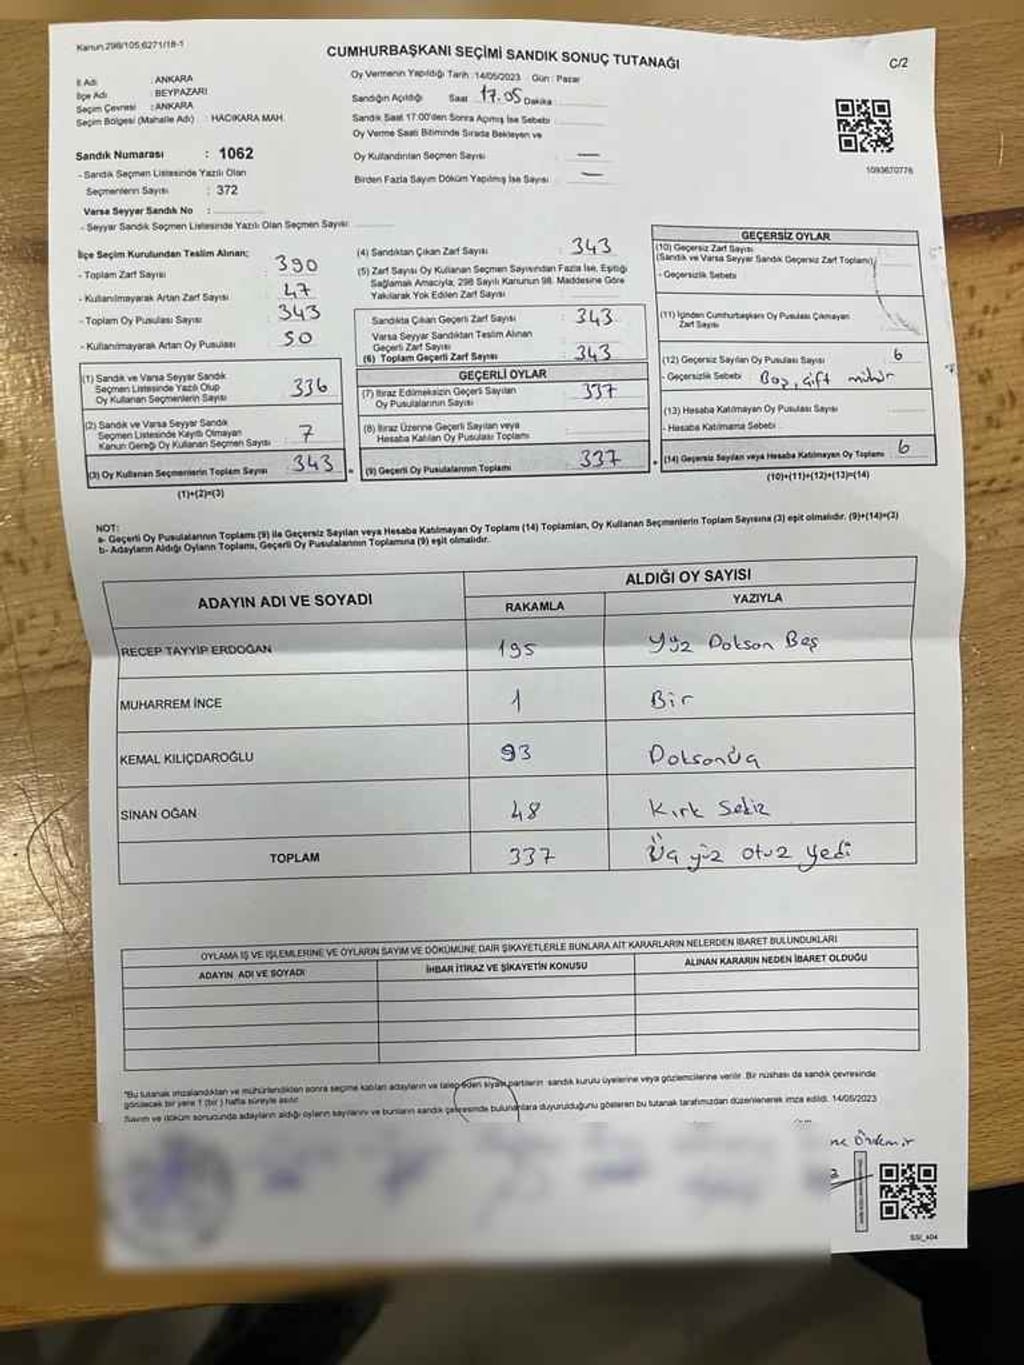 Kanun 298/105,6271/18-1
CUMHURBAŞKANI SEÇİMİ SANDIK SONUÇ TUTANAĞI
C/2
İl Adı : ANKARA
İlçe Adı : BEYPAZARI
Seçim Çevresi : ANKARA
Seçim Bölgesi (Mahalle Adı) : HACIKARA MAH.
Sandık Numarası : 1062
- Sandık Seçmen Listesinde Yazılı Olan
Seçmenlerin Sayısı : 372
Varsa Seyyar Sandık No :
- Seyyar Sandık Seçmen Listesinde Yazılı Olan Seçmen Sayısı
Oy Vermenin Yapıldığı Tarih : 14/05/2023 Gün : Pazar
Sandığın Açıldığı Saat 17.05 Dakika
Sandık Saat 17:00'den Sonra Açılmış İse Sebebi
Oy Verme Saati Bitiminde Sırada Bekleyen ve
Oy Kullandırılan Seçmen Sayısı —
Birden Fazla Sayım Döküm Yapılmış İse Sayısı —
1093670776
İlçe Seçim Kurulundan Teslim Alınan;
- Toplam Zarf Sayısı 390
- Kullanılmayarak Artan Zarf Sayısı 47
- Toplam Oy Pusulası Sayısı 343
- Kullanılmayarak Artan Oy Pusulası 50
(1) Sandık ve Varsa Seyyar Sandık
Seçmen Listesinde Yazılı Olup
Oy Kullanan Seçmenlerin Sayısı 336
(2) Sandık ve Varsa Seyyar Sandık
Seçmen Listesinde Kayıtlı Olmayan
Kanun Gereği Oy Kullanan Seçmen Sayısı 7
(3) Oy Kullanan Seçmenlerin Toplam Sayısı 343
(1)+(2)=(3)
(4) Sandıktan Çıkan Zarf Sayısı 343
(5) Zarf Sayısı Oy Kullanan Seçmen Sayısından Fazla İse, Eşitliği
Sağlamak Amacıyla, 298 Sayılı Kanunun 98. Maddesine Göre
Yakılarak Yok Edilen Zarf Sayısı
Sandıkta Çıkan Geçerli Zarf Sayısı 343
Varsa Seyyar Sandıktan Teslim Alınan
Geçerli Zarf Sayısı
(6) Toplam Geçerli Zarf Sayısı 343
GEÇERLİ OYLAR
(7) İtiraz Edilmeksizin Geçerli Sayılan
Oy Pusulalarının Sayısı 337
(8) İtiraz Üzerine Geçerli Sayılan veya
Hesaba Katılan Oy Pusulaları Toplamı
(9) Geçerli Oy Pusulalarının Toplamı 337
GEÇERSİZ OYLAR
(10) Geçersiz Zarf Sayısı
(Sandık ve Varsa Seyyar Sandık Geçersiz Zarf Toplamı)
- Geçersizlik Sebebi
(11) İçinden Cumhurbaşkanı Oy Pusulası Çıkmayan
Zarf Sayısı
(12) Geçersiz Sayılan Oy Pusulası Sayısı 6
- Geçersizlik Sebebi Boş, Çift mühür
(13) Hesaba Katılmayan Oy Pusulası Sayısı
- Hesaba Katılmama Sebebi
(14) Geçersiz Sayılan veya Hesaba Katılmayan Oy Toplamı 6
(10)+(11)+(12)+(13)=(14)
NOT:
a- Geçerli Oy Pusulalarının Toplamı (9) ile Geçersiz Sayılan veya Hesaba Katılmayan Oy Toplamı (14) Toplamları, Oy Kullanan Seçmenlerin Toplam Sayısına (3) eşit olmalıdır. (9)+(14)=(3)
b- Adayların Aldığı Oyların Toplamı, Geçerli Oy Pusulalarının Toplamına (9) eşit olmalıdır.
ADAYIN ADI VE SOYADI
ALDIĞI OY SAYISI
RAKAMLA YAZIYLA
RECEP TAYYİP ERDOĞAN 195 Yüz Doksan Beş
MUHARREM İNCE 1 Bir
KEMAL KILIÇDAROĞLU 93 Doksanüç
SİNAN OĞAN 48 Kırk Sekiz
TOPLAM 337 Üç yüz otuz yedi
OYLAMA İŞ VE İŞLEMLERİNE VE OYLARIN SAYIM VE DÖKÜMÜNE DAİR ŞİKAYETLERLE BUNLARA AİT KARARLARIN NELERDEN İBARET BULUNDUKLARI
ADAYIN ADI VE SOYADI İHBAR İTİRAZ VE ŞİKAYETİN KONUSU ALINAN KARARIN NEDEN İBARET OLDUĞU
"Bu tutanak imzalandıktan ve mühürlendikten sonra seçime katılan adayların ve talep eden siyasi partilerin sandık kurulu üyelerine veya gözlemcilerine verilir. Bir nüshası da sandık çevresinde
görülecek bir yere 1 (bir) hafta süreyle asılır.
Sayım ve döküm sonucunda adayların aldığı oyların sayılarını ve bunların sandık çevresinde bulunanlara duyurulduğunu gösteren bu tutanak tarafımızdan düzenlenerek imza edildi. 14/05/2023
ne Özdemir
SSI_A04